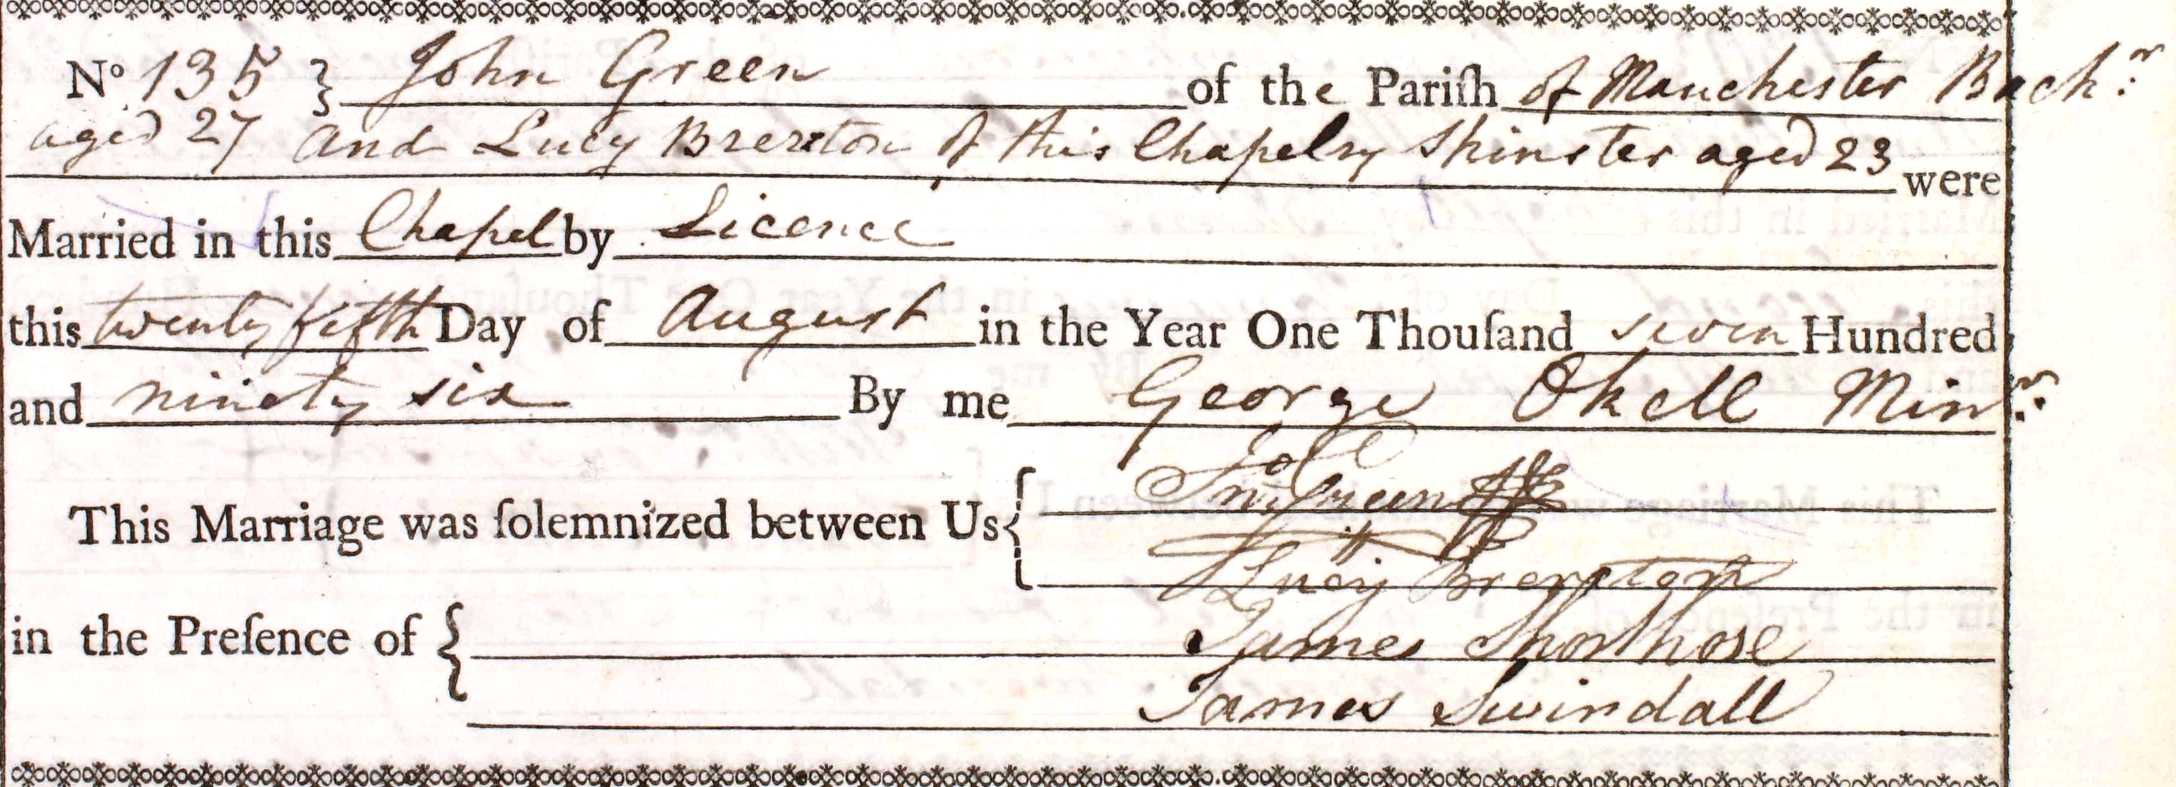 No 135 } John Green of the Pariſh of Manchester Bachr.
aged 27 and Lucy Brereton of this Chapelry Spinster aged 23 were
Married in this Chapel by Licence
this twenty fifth Day of August in the Year One Thouſand seven Hundred
and ninety six By me George Okell Minr.
This Marriage was ſolemnized between Us { Jno Green
Lucy Brereton
in the Preſence of { James Shorthose
James Swindall